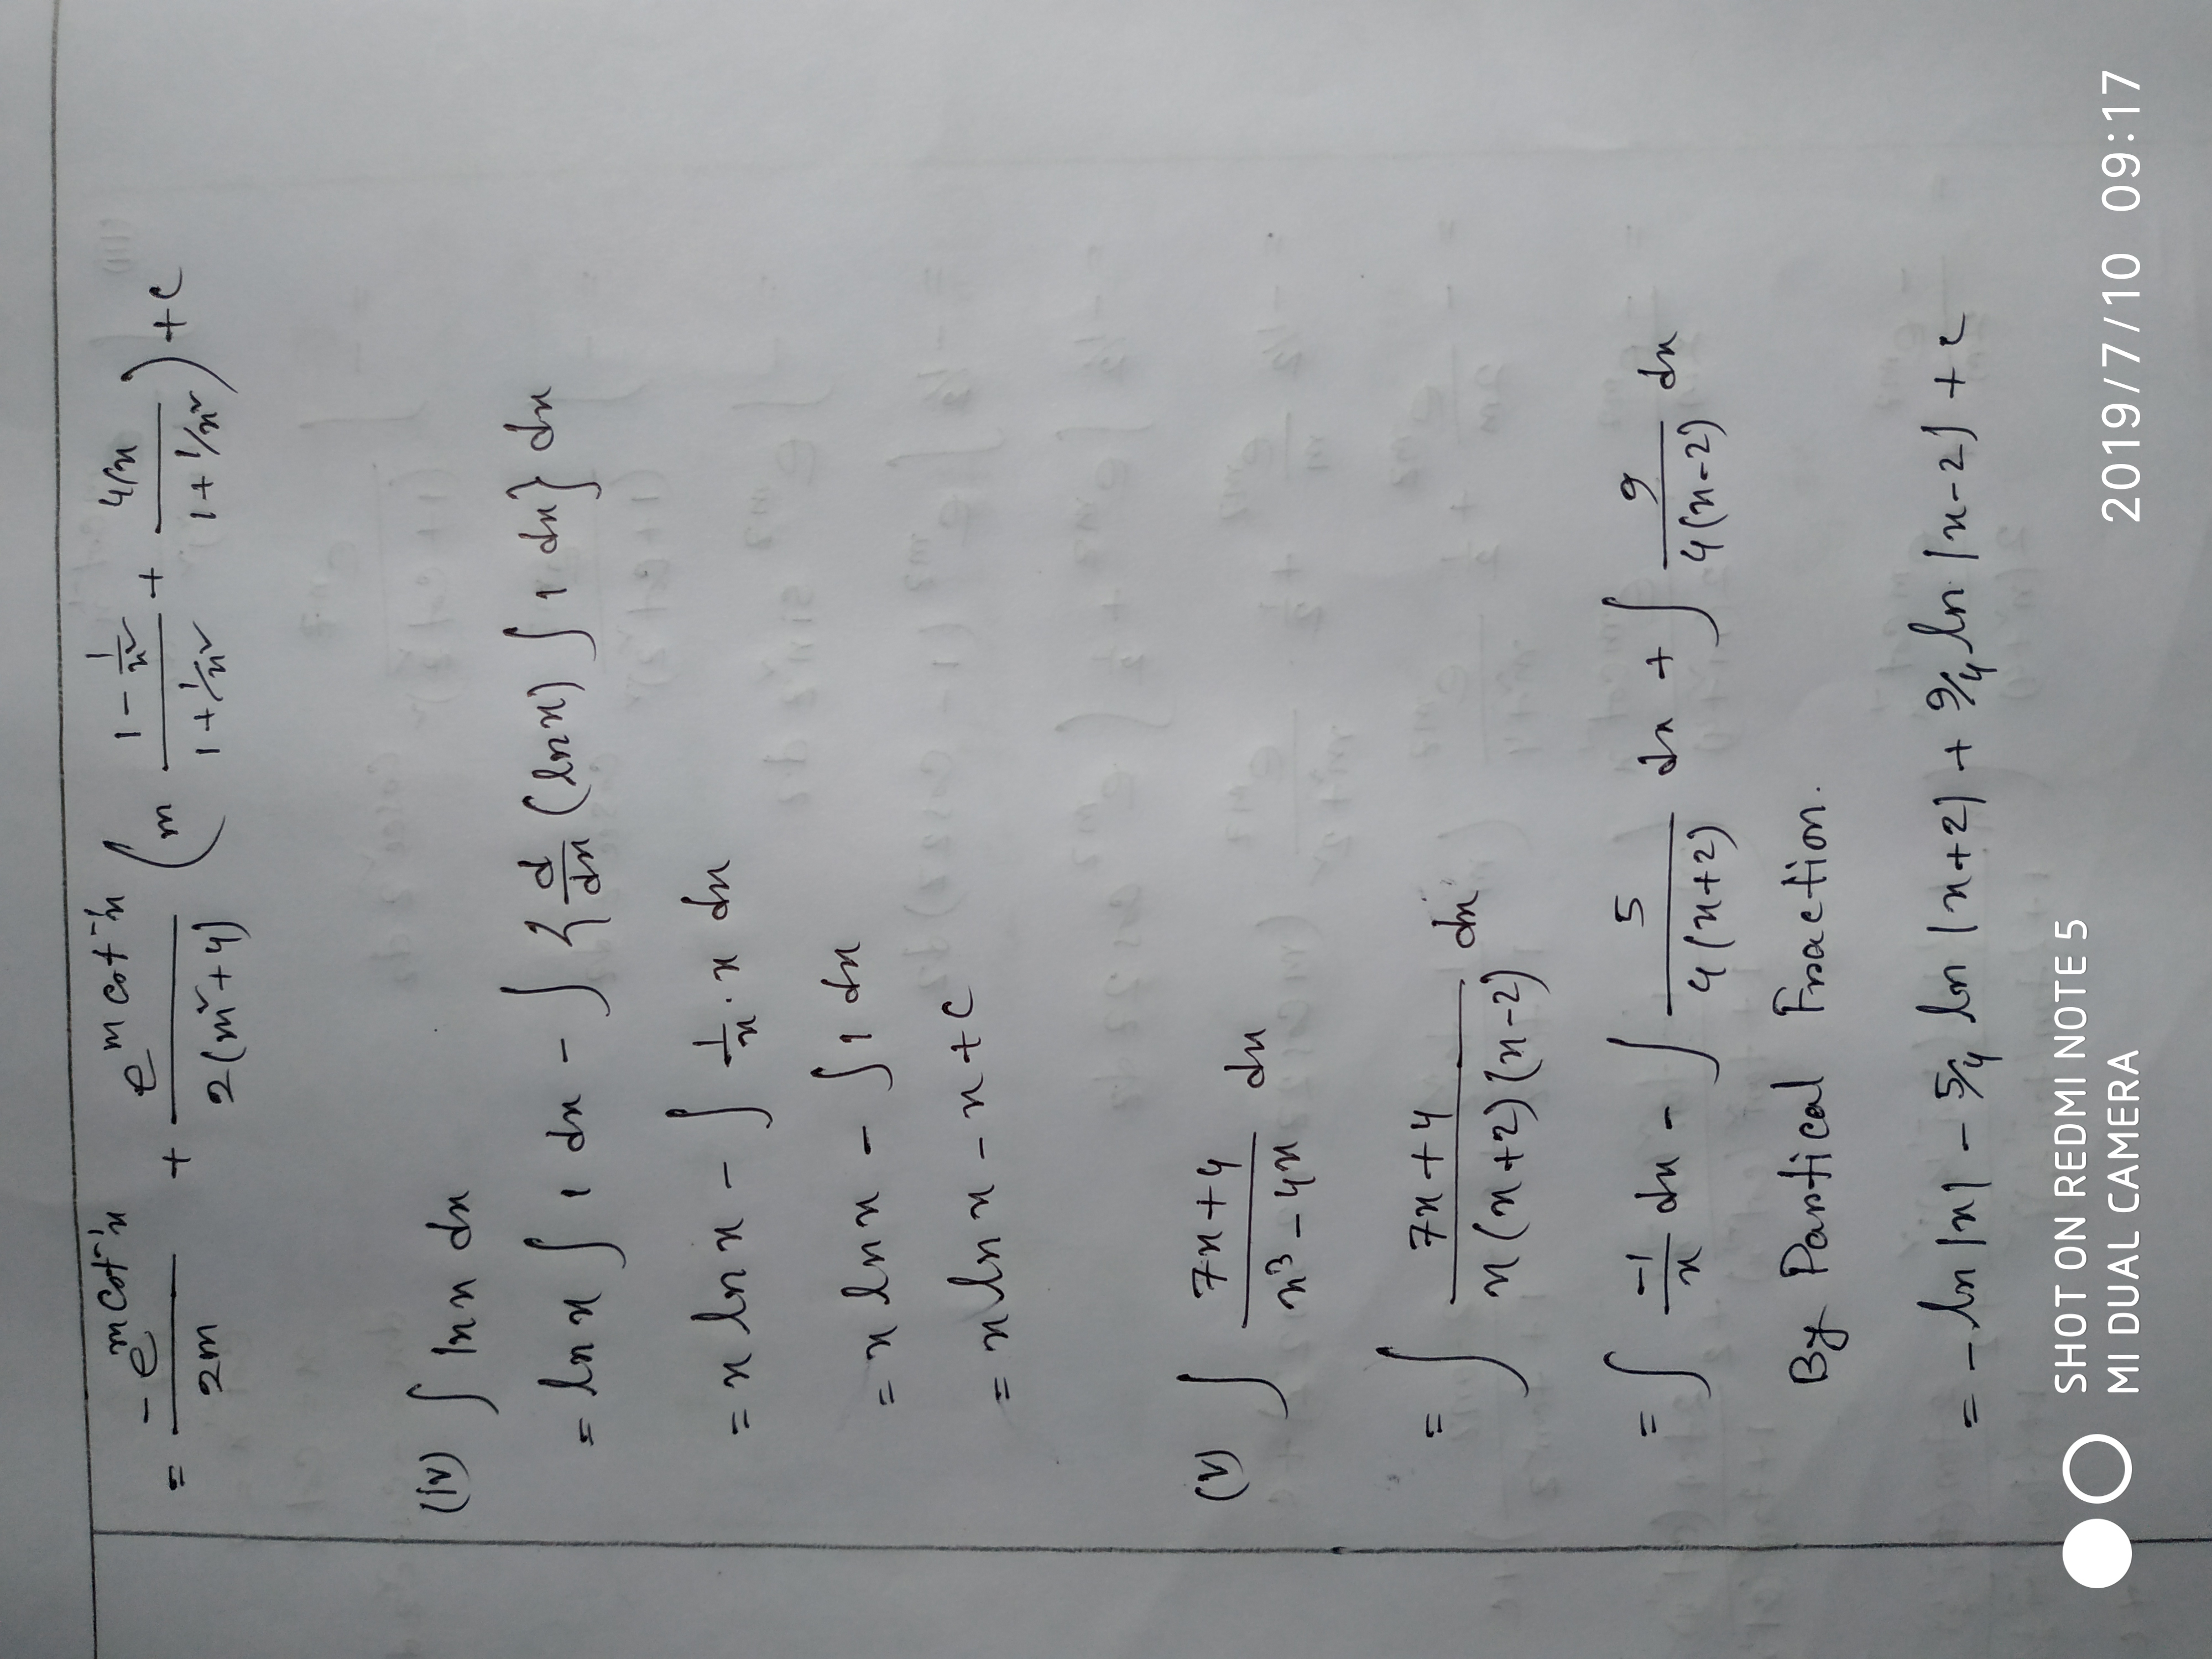 = -e^(m cot⁻¹x)/2m + e^(m cot⁻¹x)/2(m²+4) (m (1 - 1/x²)/(1 + 1/x²) + (4/x)/(1 + 1/x²)) + c
(iv) ∫ ln x dx
= ln x ∫ 1 dx - ∫ {d/dx (ln x) ∫ 1 dx} dx
= x ln x - ∫ 1/x . x dx
= x ln x - ∫ 1 dx
= x ln x - x + c
(v) ∫ (7x+4)/(x³-4x) dx
= ∫ (7x+4)/(x(x+2)(x-2)) dx
= ∫ -1/x dx - ∫ 5/(4(x+2)) dx + ∫ 9/(4(x-2)) dx
By Partical Fraction.
= - ln|x| - 5/4 ln|x+2| + 9/4 ln|x-2| + c
SHOT ON REDMI NOTE 5
MI DUAL CAMERA
2019/7/10 09:17